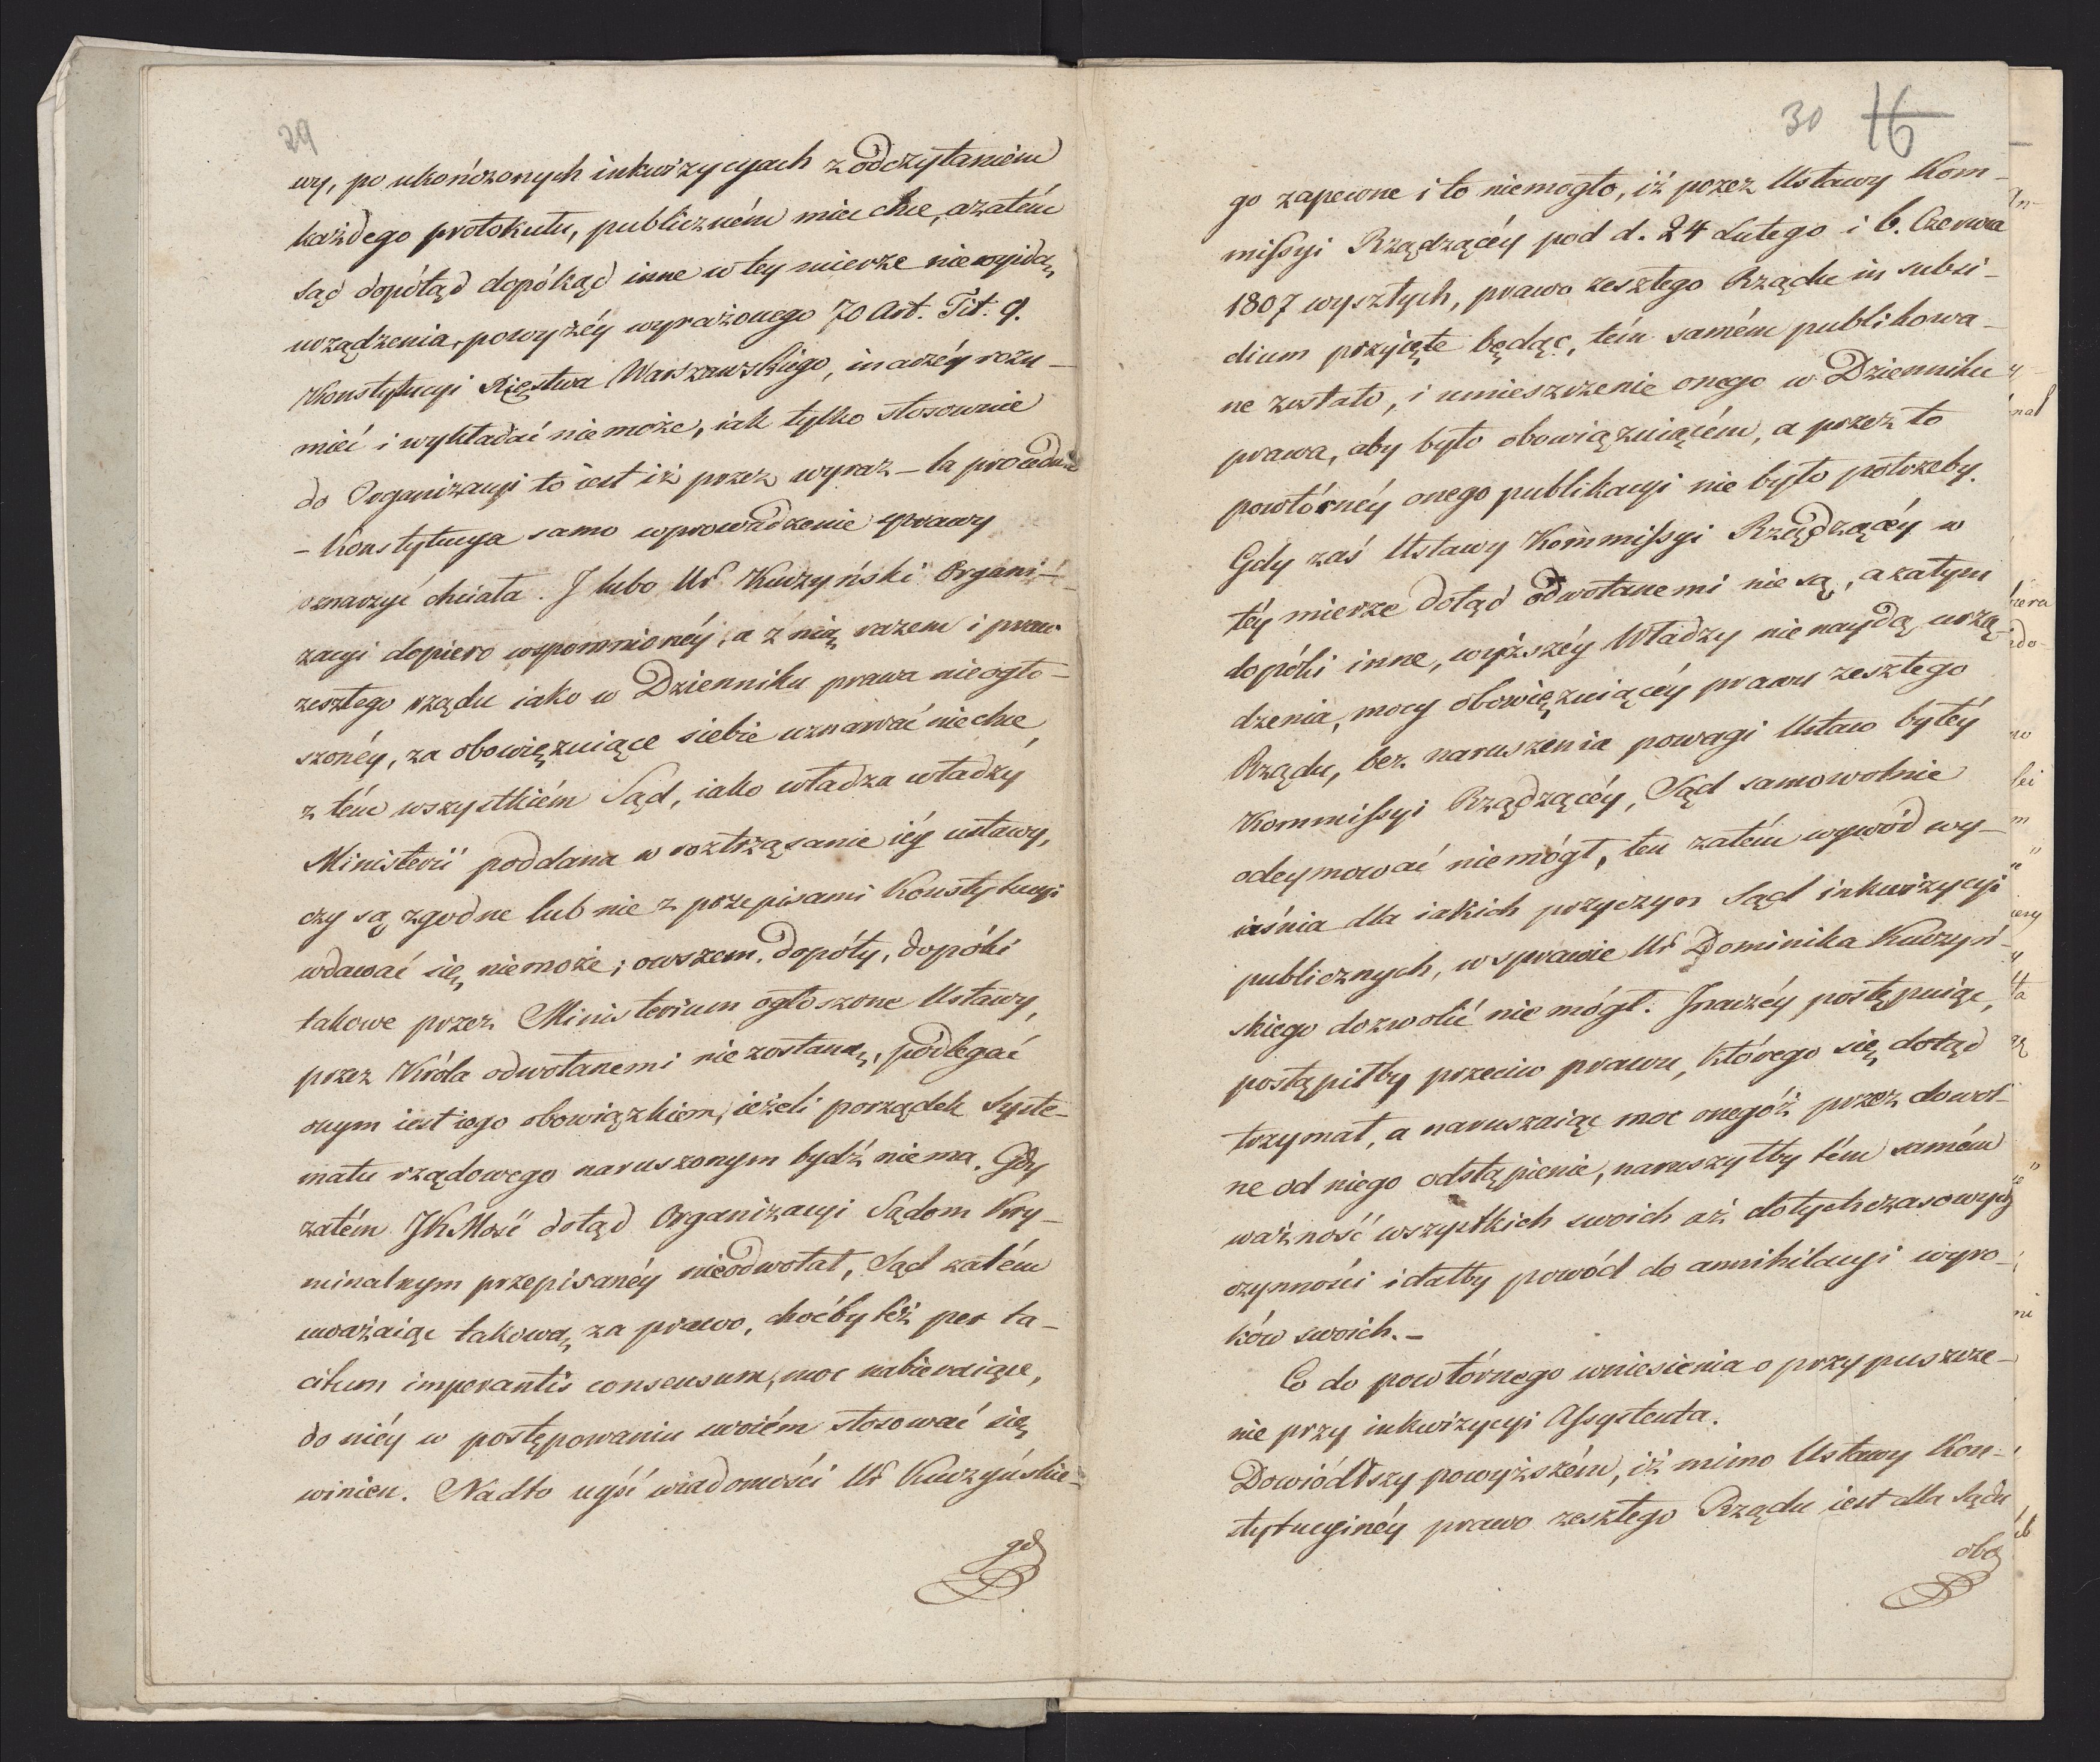 29
wy, po ukończonych inkwizycyach z odczytaniem
każdego protokułu, publiczném mieć chce, azatém
Sąd dopótąd dopókąd inne w tey mierze niewyidą
urządzenia, powyżéy wyrażonego 70 Art. Tit. 9.
Konstytucyi Xięstwa Warszawskiego, inaczéy rozu-
mieć i wykładać nie może, iak tylko stosownie
do Organizacyi to iest iż przez wyraz – la procedure
– Konstytucya samo wprowadzenie sprawy
oznaczyć chciała. J lubo Ur Kuczyński Organi-
zacyi dopiero wspomnionéy, a z nią razem i praw
zeszłego rządu iako w Dzienniku prawa nieogło-
szonéy, za obowięzuiące siebie uznawać niechce,
z tém wszystkiém Sąd, iako władza władzy
Ministerii poddana w roztrząsanie iéy ustawy,
czy są zgodne lub nie z przepisami Konstytucyi
wdawać się niemoże; owszem, dopóty, dopóki
takowe przez Ministerium ogłoszone Ustawy,
przez Króla odwołanemi nie zostaną, podlegać
onym iest iego obowiązkiem, ieżeli porządek Syste-
matu rządowego naruszonym bydź niema. Gdy
zatém JKMość dotąd Organizacyi Sądom Kry-
minalnym przepisanéy nieodwołał, Sąd zatém
uważaiąc takową za prawo, choćby téż per ta-
citum imperantis consensum, moc nabieraiące,
do niéy w postępowaniu swoiém stosować się
winien. Nadto uyść wiadomości Ur Kuczyńskie-
go
30 16
go zapewne i to niemogło, iż przez Ustawy Kom-
missyi Rządzącéy pod d. 24 Lutego i 6. Czerwca
1807 wyszłych, prawo zeszłego Rządu in subsi-
dium przyięte będąc, tém samém publikowa-
ne zostało, i umieszczenie onego w Dzienniku
prawa, aby było obowiązuiącém, a przez to
powtórnéy onego publikacyi nie było potrzeby.
Gdy zaś Ustawy Kommissyi Rządzącéy w
téy mierze dotąd odwołanemi nie są, a zatym
dopóki inne, wyższéy Władzy nie nayda urzą-
dzenia, mocy obowięzuiącéy prawu zeszłego
Rządu, bez naruszenia powagi Ustaw byłéy
Kommissyi Rządzącéy, Sąd samowolnie
odeymować niemógł, ten zatém wywód wy-
iaśnia dla iakich przyczyn Sąd inkwizycyi
publicznych, w sprawie Ur Dominika Kuczyń-
skiego dozwolić nie mógł. Jnaczéy postępuiąc,
postąpiłby przeciw prawu, którego się dotąd
trzymał, a naruszaiąc moc onegóż przez dowol-
ne od niego odstąpienie, naruszyłby tém samém
ważność wszystkich swoich aż dotychczasowych
czynności i dałby powód do annihilacyi wyro-
ków swoich. –
Co do powtórnego wniesienia o przypuszcze-
nie przy inkwizycyi Assystenta.
Dowiódłszy powyższém, iż mimo Ustawy Kon-
stytucyinéy prawo zeszłego Rządu iest dla Sądu
obo